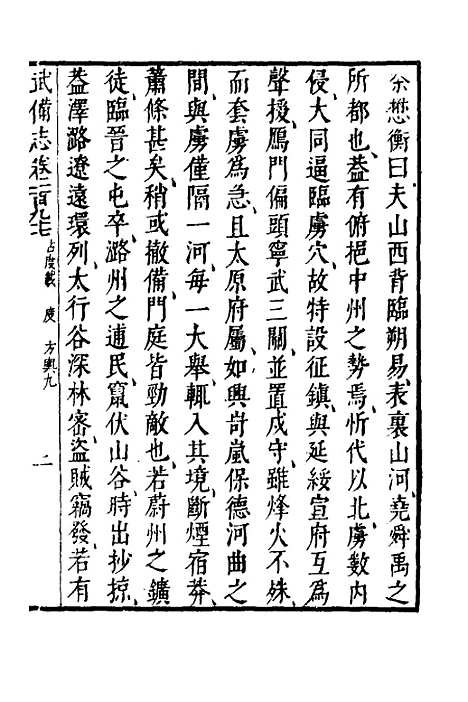 余懋衡曰夫山西背臨朔易表裏山河堯舜禹之
所都也葢有俯挹中州之勢焉忻代以北虜數內
侵大同逼臨虜穴故特設征鎮與延綏宣府互為
聲援鴈門偏頭寧武三關並置戍守雖烽火不殊
而套虜為急且太原府屬如興岢嵐保德河曲之
間與虜僅隔一河每一大舉輒入其境斷煙宿莽
蕭條甚矣稍或撤備門庭皆勁敵也若蔚州之鑛
徒臨晉之屯卒潞州之逋民竄伏山谷時出抄掠
葢澤潞遼遠環列太行谷深林密盜賊竊發若有
武備志卷一百九七 占度載 度 方輿九 二